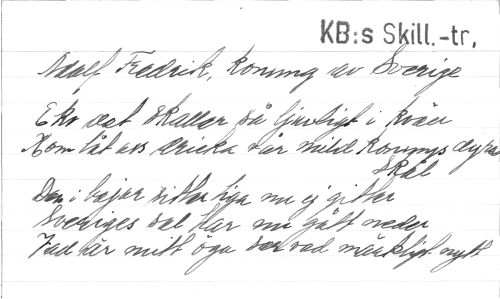 KB:s Skill.-tr.
Adolf Fredrik, konung av Sverige
Eko det skallar så ljuvligt i kväll
Kom låt oss dricka vår mild konungs dyra
skål
Den i bojor sitter liga nu ej gitter
Sveriges sol har nu gått neder
Vad är mitt öga ser vad märkligt nytt